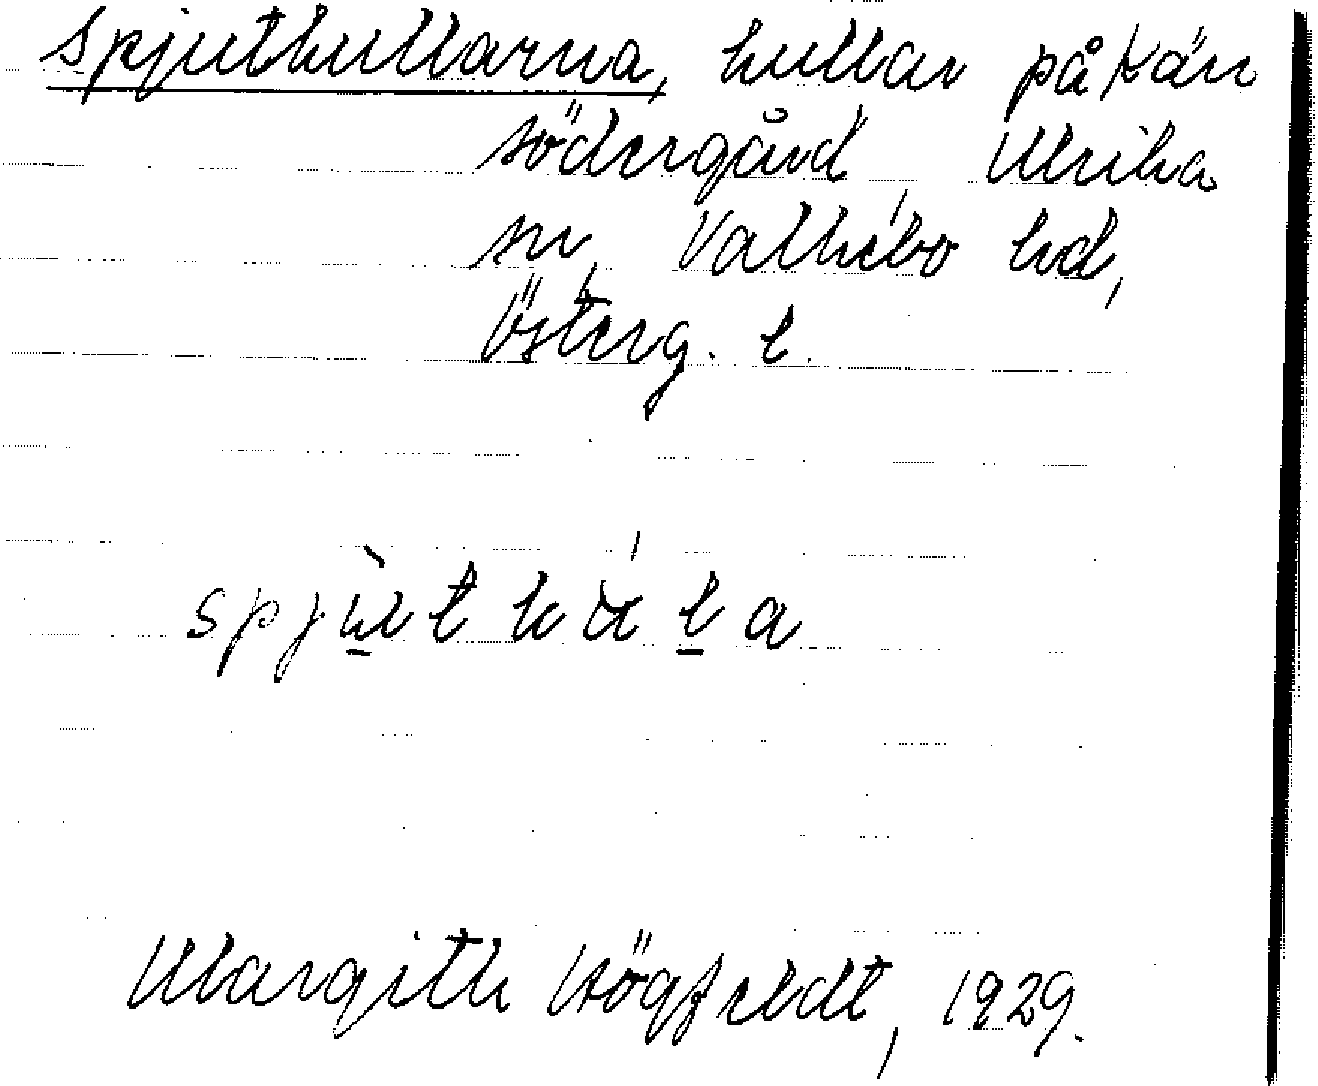 Spjutkullarna, kullar på Kån
södergård, Ulrika
sn, Valkebo hd,
Österg. l.
spju̱tkuḻa
Margith Högfeldt, 1929.